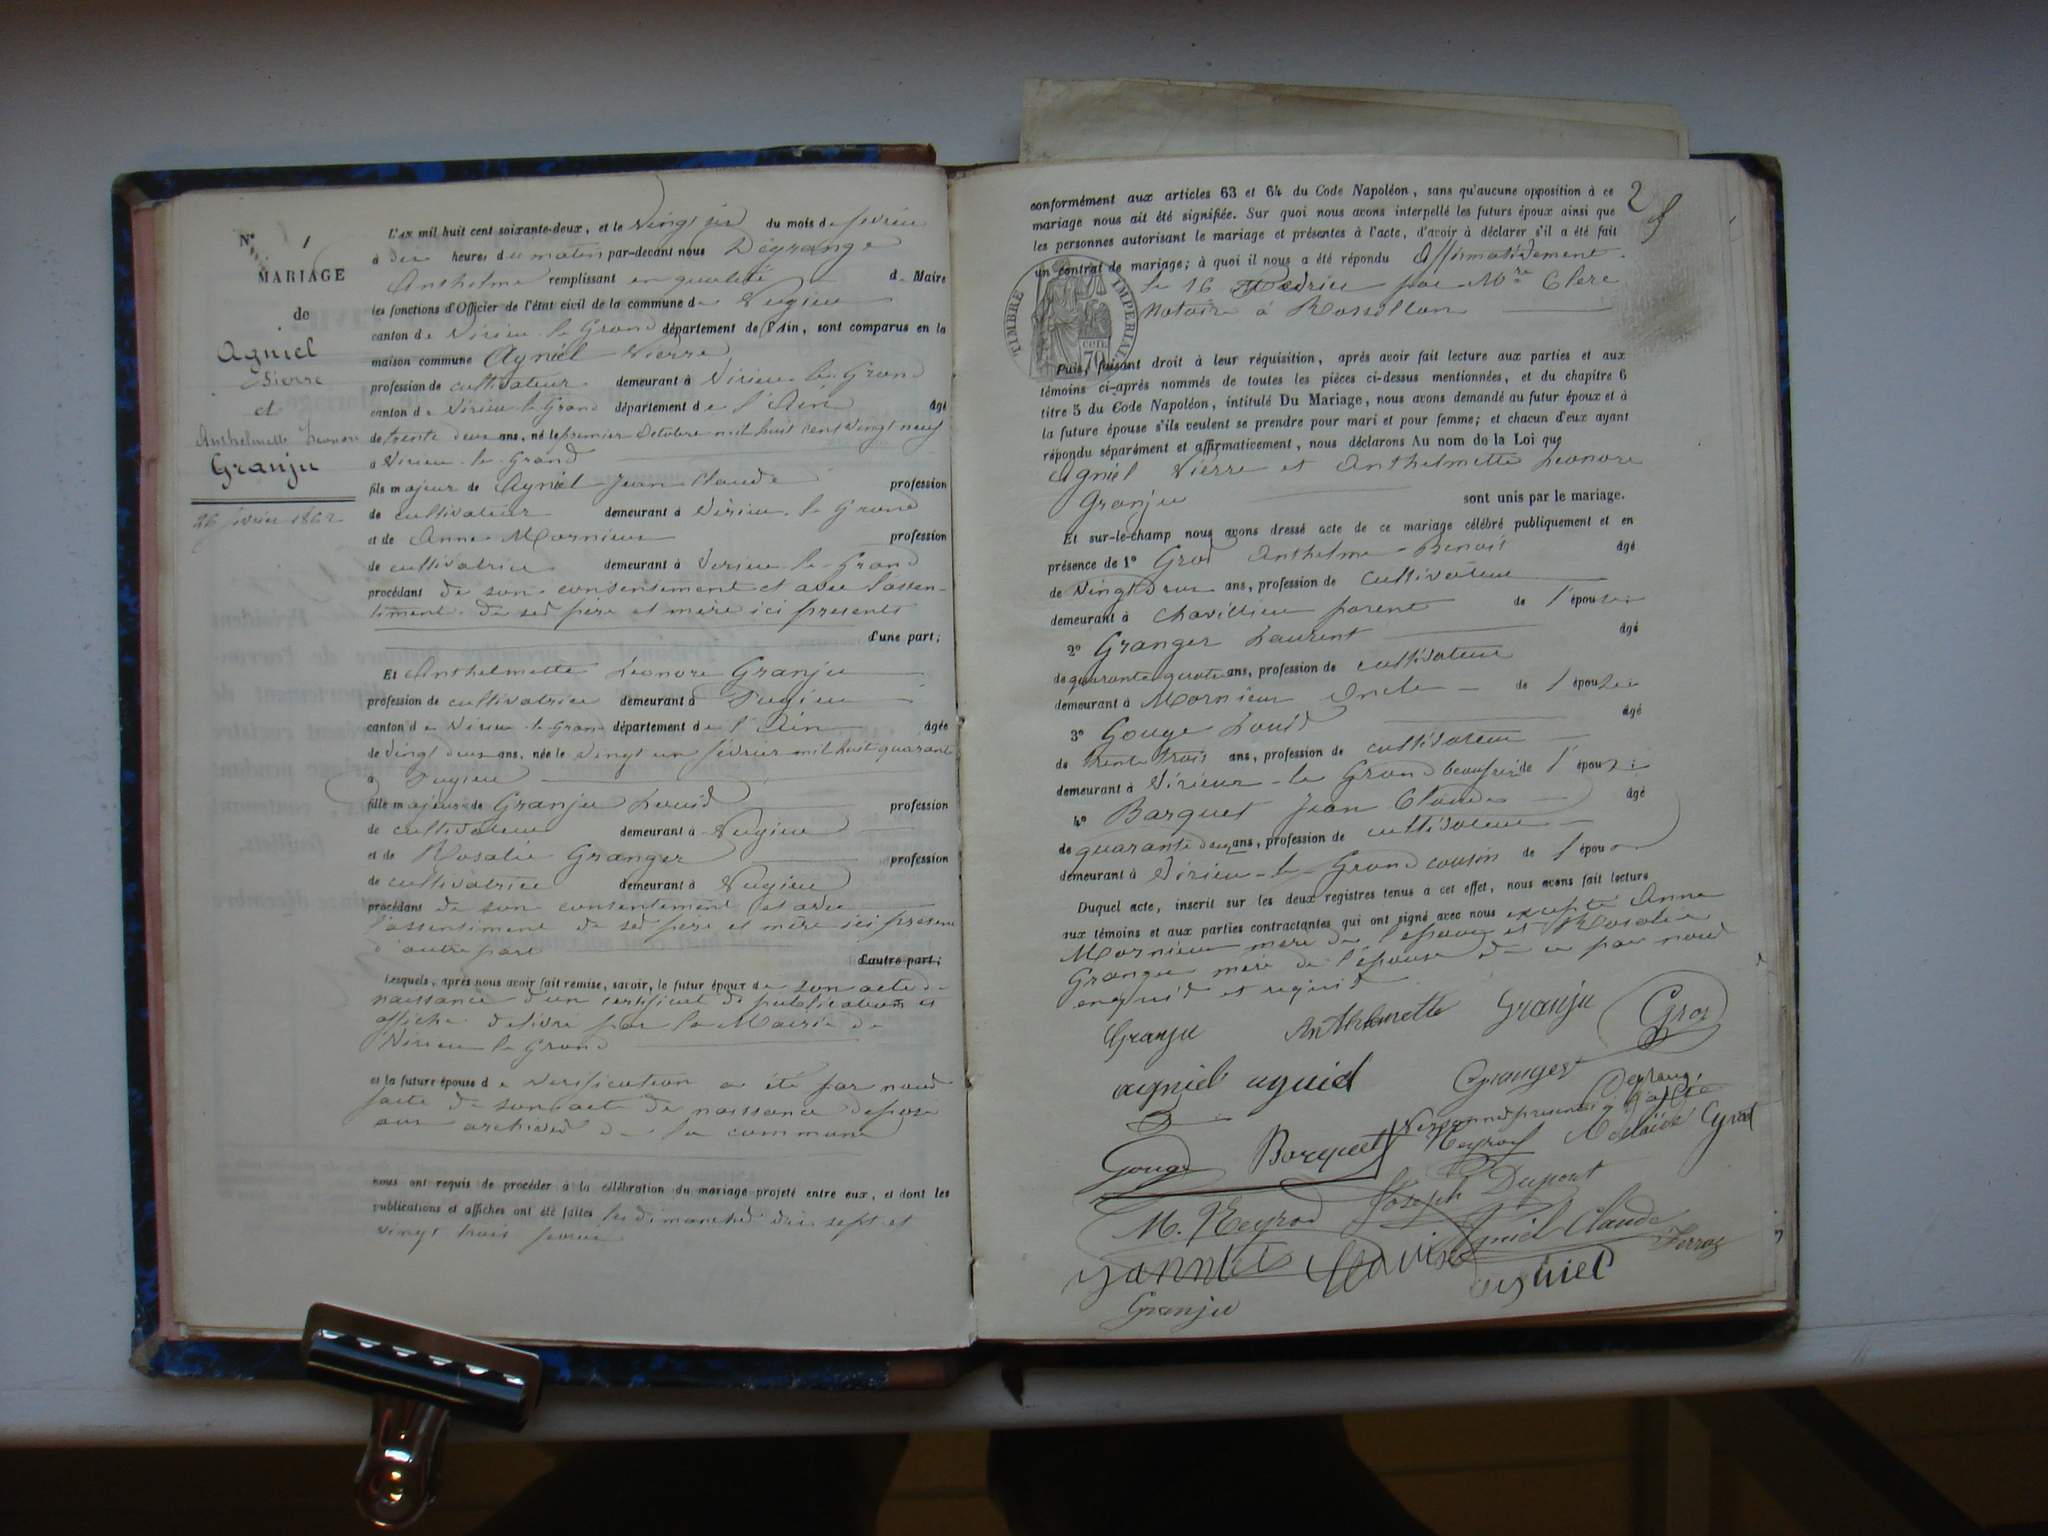 N° 1
MARIAGE
de
Agniel
Pierre
et
Anthelmette Leonore
Granju
26 fevrier 1862
L'AN mil huit cent soixante-deux, et le vingt six du mois de fevrier
à dix heures du matin par-devant nous Dégrange
Anthelme remplissant en qualité de Maire
les fonctions d'Officier de l'état civil de la commune de Pugieu
canton de Virieu-le-Grand département de l'Ain, sont comparus en la
maison commune Agniel Pierre
profession de cultivateur demeurant à Virieu-le-Grand
canton de Virieu-le-Grand département de l'Ain âgé
de trente deux ans, né le premier Octobre mil huit cent vingt neuf
à Virieu-le-Grand
fils majeur de Agniel Jean Claude profession
de cultivateur demeurant à Virieu-le-Grand
et de Anne Mornieux profession
de cultivatrice demeurant à Virieu-le-Grand
procédant de son consentement et avec l'assen-
timent de ses père et mère ici presents
d'une part;
Et Anthelmette Leonore Granju
profession de cultivatrice demeurant à Pugieu
canton de Virieu-le-Grand département de l'Ain âgée
de vingt deux ans, née le vingt un février mil huit quarante
à Pugieu
fille majeure de Granju Louis profession
de cultivateur demeurant à Pugieu
et de Rosalie Granger profession
de cultivatrice demeurant à Pugieu
procédant de son consentement et avec
l'assentiment de ses père et mère ici présent
d'autre part
d'autre part;
Lesquels, après nous avoir fait remise, savoir, le futur époux de son acte de
naissance d'un certificat de publications et
affiche delivré par la Mairie de
Virieu le Grand
et la future épouse de verification a été par nous
faite de son acte de naissance deposé
aux archives de la commune
nous ont requis de procéder à la célébration du mariage projeté entre eux, et dont les
publications et affiches ont été faites les dimanches dix sept et
vingt trois fevrier
2
conformément aux articles 63 et 64 du Code Napoléon, sans qu'aucune opposition à ce
mariage nous ait été signifiée. Sur quoi nous avons interpellé les futurs époux ainsi que
les personnes autorisant le mariage et présentes à l'acte, d'avoir à déclarer s'il a été fait
un contrat de mariage; à quoi il nous a été répondu Affirmativement.
le 16 fevrier par Mtre Clerc
Notaire à Rossillon
TIMBRE IMPERIAL
70 CEN.
Puis, faisant droit à leur réquisition, après avoir fait lecture aux parties et aux
témoins ci-après nommés de toutes les pièces ci-dessus mentionnées, et du chapitre 6
titre 5 du Code Napoléon, intitulé Du Mariage, nous avons demandé au futur époux et à
la future épouse s'ils veulent se prendre pour mari et pour femme; et chacun d'eux ayant
répondu séparément et affirmativement, nous déclarons Au nom de la Loi que
Agniel Pierre et Anthelmette Leonore
Granju sont unis par le mariage.
Et sur-le-champ nous avons dressé acte de ce mariage célébré publiquement et en
présence de 1° Gros Anthelme Benoit âgé
de vingt deux ans, profession de cultivateur
demeurant à Chavillieu parent de l'épouse
2° Granger Laurent âgé
de quarante quatre ans, profession de cultivateur
demeurant à Mornieux Oncle de l'épouse
3° Gouge Louis âgé
de trente trois ans, profession de cultivateur
demeurant à Virieu-le-Grand beaufrère de l'époux
4° Barquet Jean Claude âgé
de quarante deux ans, profession de cultivateur
demeurant à Virieu-le-Grand cousin de l'époux
Duquel acte, inscrit sur les deux registres tenus à cet effet, nous avons fait lecture
aux témoins et aux parties contractantes qui ont signé avec nous excepté Anne
Mornieux mère de l'époux et Rosalie
Granger mère de l'épouse de ce par nous
enquis et requis
Granju Anthelmette Granju Gros
agniel agniel Granger Degrange
Personnes presentes à l'acte
Gouge Barquet Peyrod Gros
M. Peyrod Joseph Dupont
Agniel Claude
agniel
Granju